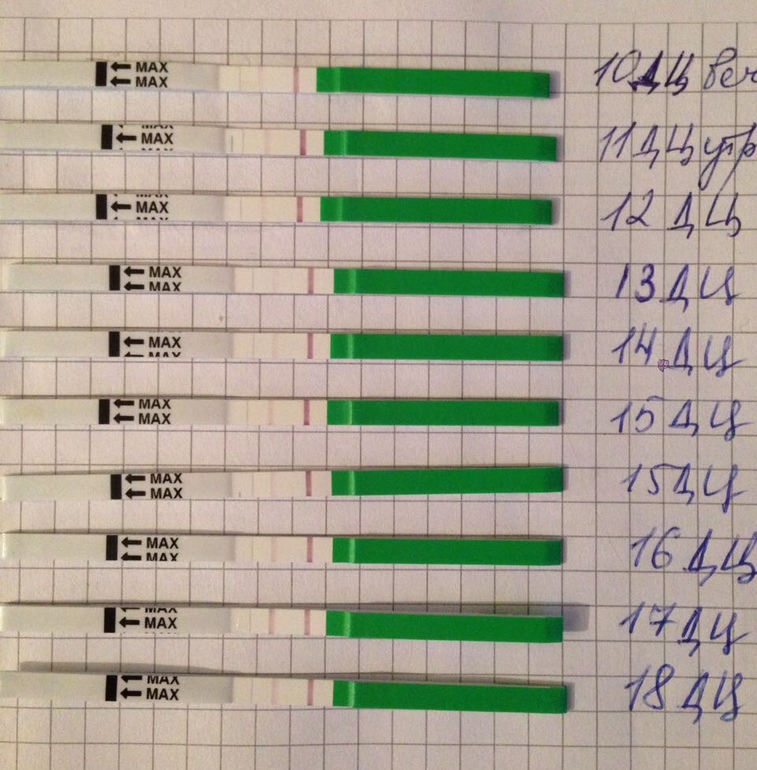 MAX
MAX
10 ДЦ веч
MAX
MAX
11 ДЦ утр
MAX
MAX
MAX
12 ДЦ
MAX
MAX
13 ДЦ
MAX
MAX
14 ДЦ
MAX
MAX
15 ДЦ
MAX
MAX
15 ДЦ
MAX
MAX
16 ДЦ
MAX
MAX
17 ДЦ
MAX
MAX
MAX
18 ДЦ
MAX
MAX